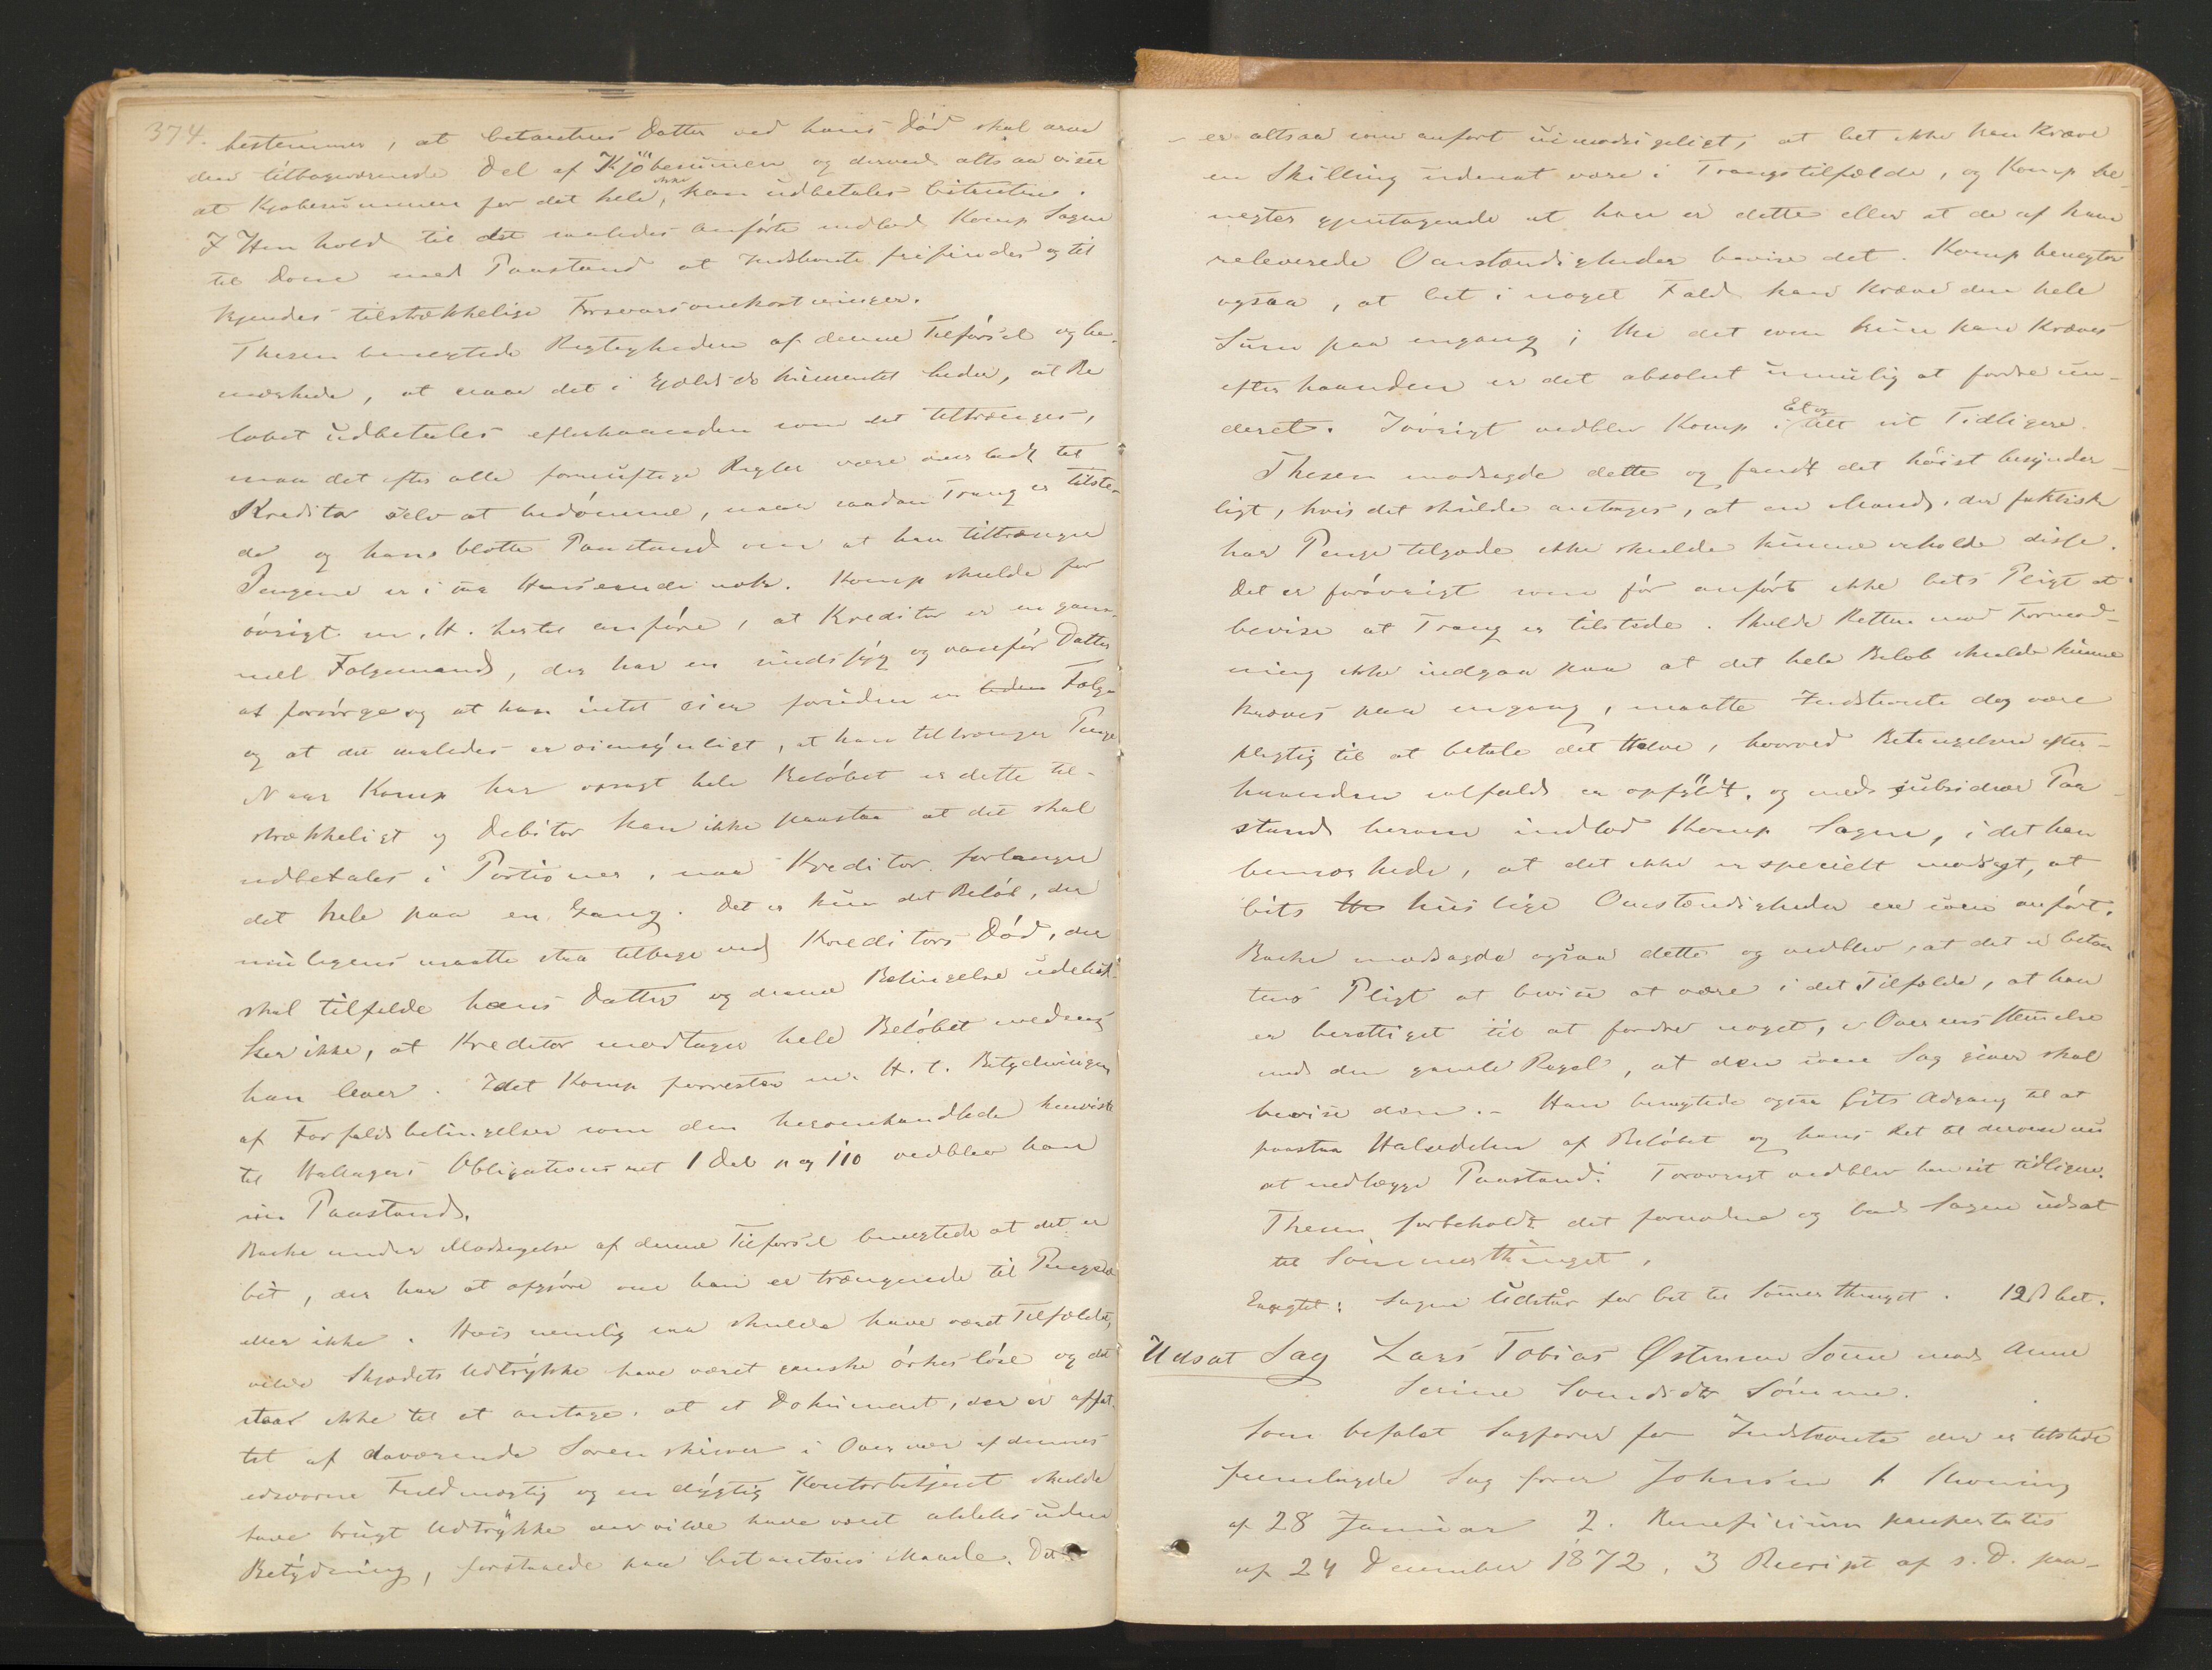 374.
bestemmer, at Citantens Datter ved hans Död skal arve
den tilbageværende Del af Kjöbesummen og derved altsaa viser
at Kjøbesummen for det hele, ikke kan udbetales Citanten.
I Henhold til det saaledes anförte indlod Komp Sagen
til Dom med Paastand at Indstevnte frifindes og til
kjendes tilstrækkelige Forsvarsomkostninger.
Thesen benegtede Rigtigheden af denne Tilförsel og be-
mærkede, at naar det i Gjældsdokumentet heder, at Be
löbet udbetales efterhaanden som det tiltrænges,
maa det efter alle fornuftige Regler være overladt til
Kreditor selv at bedömme, naar saadan Trang er tilste-
de og hans blotte Paastand om at han tiltrænger
Pengene er i saa Henseende nok. Komp skulde for
övrigt m. H. hertil anföre, at Kreditor er en gam-
mel Folgemand, der har en sindssyg og vanför Datter
at forsörge og at han intet eier foruden en Folge
og at det saaledes er öiensynligt, at han tiltrænger Penge
Naar Komp har opsagt hele Belöbet er dette til-
strækkeligt og Debitor kan ikke paastaa at det skal
udbetales i Portioner, naar Kreditor forlanger
det hele paa en Gang. Det er kun det Belöb, der
muligens maatte staa tilbage ved Kreditors Död, der
skal tilfalde hans Datter og denne Betingelse udeluk-
ker ikke, at Kreditor modtager hele Belöbet medens
han lever. Idet Komp forresten m. H. t. Betydningen
af Forfaldsbetingelser som den heromhandlede henviste
til Hallagers Obligationsret 1 Del p og 110 vedblev han
sin Paastand.
Bache under Modsigelse af denne Tilförsel benegtede at det er
Cit, der har at afgjöre om han er trængende til Pengene
eller ikke. Hvis nemlig saa skulde have været Tilfældet,
vilde Skjödets Udtrykke have været ganske örkeslöse og det
staar ikke til at antage, at et Dokument, der er affat-
tet af daværende Sorenskriver i Overvær af dennes
edsvorne Fuldmægtig og en dygtig Kontorbetjent skulde
have brugt Udtrykke der vilde have været aldeles uden
Betydning, forstaaede paa Citantens Maade. Det
er altsaa som anfört uimodsigeligt, at Cit ikke kan kræve
en Skilling uden at være i Trangstilfælde, og Komp be-
negter gjentagende at han er dette eller at de af ham
releverede Omstændigheder bevise det. Komp benegter
ogsaa, at Cit i noget Fald kan kræve den hele
Sum paa engang; thi det som kun kan kræves
efterhaanden er det absolut umulig at fordre un-
deret. Iövrigt vedblev Komp i Et og Alt sit Tidligere.
Thesen modsagde dette og fandt det höist besynder-
ligt, hvis det skulde antages, at en Mand, der faktisk
har Penge tilgode ikke skulde kunne erholde disse.
Det er forövrigt som för anfört ikke Cits Pligt at
bevise at Trang er tilstede. Skulde Retten mod Formod-
ning ikke indgaa paa at det hele Belöb skulde kunne
kræves paa engang, maatte Indstevnte dog være
pligtig til at betale det Halve, hvorved Betingelsen efter-
haanden ialfald er opfyldt, og med subsidiær Paa-
stand herom indlod Komp Sagen, idet han
bemærkede, at det ikke er specielt modsagt, at
Cits huslige Omstændigheder ere som anfört.
Bache modsagde ogsaa dette og vedblev, at det er Citan
tens Pligt at bevise at være i det Tilfælde, at han
er berettiget til at fordre noget, i Overensstemmelse
med den gamle Regel, at den som Sag giver skal
bevise den. - Han benegtede ogsaa Cits Adgang til at
paastaa Halvdelen af Belöbet og hans Ret til derom nu
at nedlægge Paastand. Forövrigt vedblev han sit tidligere.
Thesen forbeholdt det fornødne og bad Sagen udsat
til Sommerthinget.
Eragtet: Sagen Udstår for Cit til Sommerthinget. 12 s bet.
Udsat Sag Lars Tobias Østensen Sömme mod Anne
Serine Svendsdtr Sömme.
Som befalet Sagförer for Indstevnte der er tilstede
fremlagde Sagförer Johnsen 1 Stevning
af 28 Januar 2. Beneficium paupertatis
af 24 December 1872, 3 Rescript af s. D. paa-